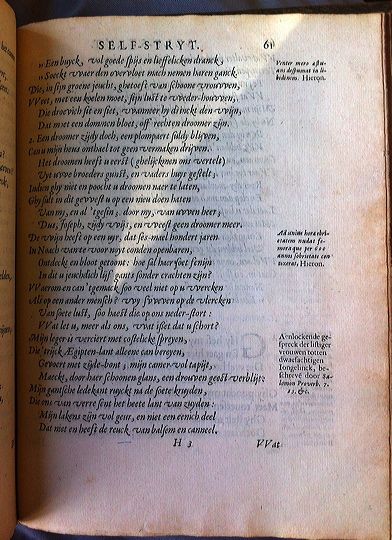 SELF-STRYT. 61
„ Een buyck, vol goede spijs en lieffelicken dranck,
„ Soeckt waer den overvloet mach nemen haren ganck.
Die, in sijn groene jeucht, ghetoest van schoone vrouwen,
Weet, met een koelen moet, sijn lust te weder-houwen,
Die droevich sit en siet, wanneer hy drinckt den wijn,
Dat is met een dommen bloet, off recht en droomer zijn.
Een droomer zijdy doch, een plompaert suldy blijven,
Can u mijn heus onthael tot geen vermaken drijven.
Het droomen heeft u eerst (ghelijckmen ons vertelt)
Uyt uwe broeders gunst, en vaders huys gestelt;
Indien ghy niet en poocht u droomen naer te laten,
Ghy sult in dit gewest u op een nieu doen haten
Van my, en al 'tgesin; door my, van uwen heer;
Dus, Joseph, zijdy wijs, en weest geen droomer meer.
De wijn heeft op een uyr, dat ses-mael hondert jaren
In Noach ware noyt conden openbaren,
Ontdeckt en bloot getoont: hoe sal hier soet fenijn
In die u jeuchdich lijf gants sonder crachten zijn?
Waerom en can 'tgemack soo veel niet op u wercken
Als op een ander mensch? wy sweven op de vlercken
Van soete lust, soo haest die op ons neder-stort:
Wat let u, meer als ons, wat ist dat u schort?
Mijn leger is verciert met costelicke spreyen,
Die 'trijck Ægipten-lant alleene can bereyen,
Gevoert met zijde-bont; mijn camer vol tapijt,
Maeckt, door haer schoonen glans, een droeven geest verblijt:
Mijn gantsche ledekant ruyckt na de soete kruyden,
Die ons van verre sent het heete lant van zuyden:
Mijn lakens zijn vol geur, en niet een eenich deel
Dat niet en heeft de reuck van balsem en canneel.
H 3 Wat
Venter mero æstuans
despumat in libidinem.
Hieron.
Ad unius horæ ebrietatem
nudat femora
quæ per 600
annos sobrietate contexerat,
Hieron.
Aenlockende gespreck
der listiger
vrouwen totten
dwaefachtigen
Jongelinck, beschreve
door Salomon
Proverb. 7.